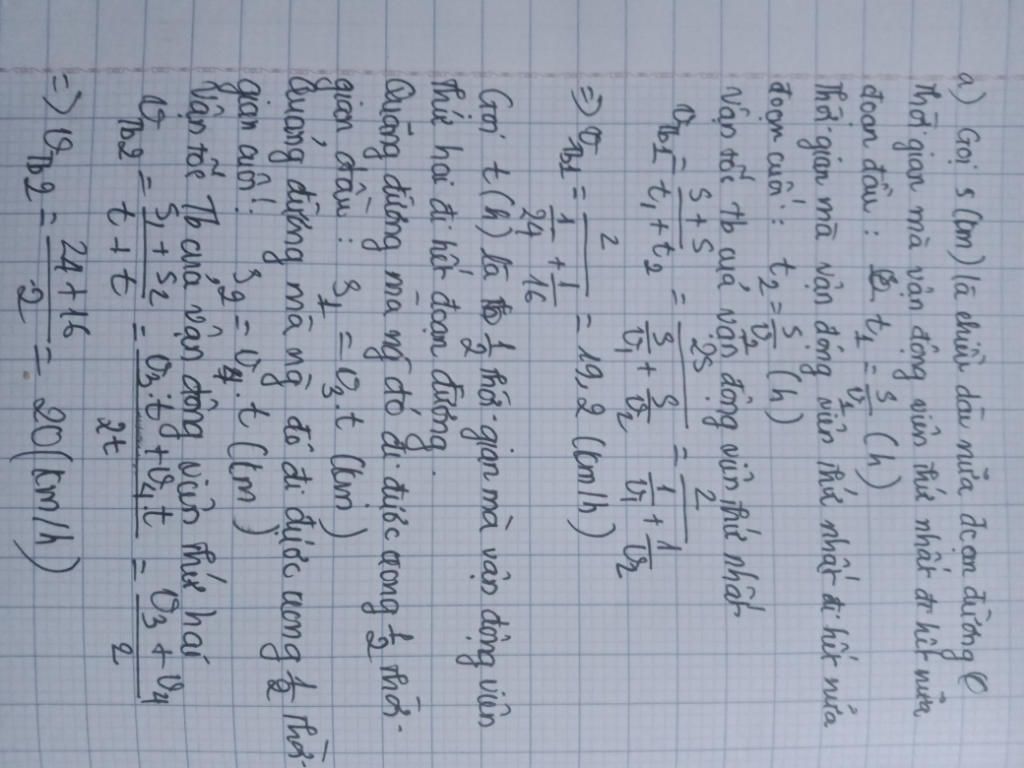 a) Gọi s (km) là chiều dài nửa đoạn đường
Thời gian mà vận động viên thứ nhất đi hết nửa
đoạn đầu : t₁ = s/v₁ (h)
Thời gian mà vận động viên thứ nhất đi hết nửa
đoạn cuối : t₂ = s/v₂ (h)
Vận tốc Tb của vận động viên thứ nhất
v_Tb1 = (s + s)/(t₁ + t₂) = 2s/(s/v₁ + s/v₂) = 2/(1/v₁ + 1/v₂)
=> v_Tb1 = 2/(1/24 + 1/16) = 19,2 (km/h)
Gọi t (h) là 1/2 thời gian mà vận động viên
thứ hai đi hết đoạn đường.
Quãng đường mà ng đó đi được trong 1/2 thời
gian đầu : s₁ = v₃.t (km)
Quãng đường mà ng đó đi được trong 1/2 thời
gian cuối : s₂ = v₄.t (km)
Vận tốc Tb của vận động viên thứ hai
v_Tb2 = (s₁ + s₂)/(t + t) = (v₃.t + v₄.t)/2t = (v₃ + v₄)/2
=> v_Tb2 = (24 + 16)/2 = 20 (km/h)